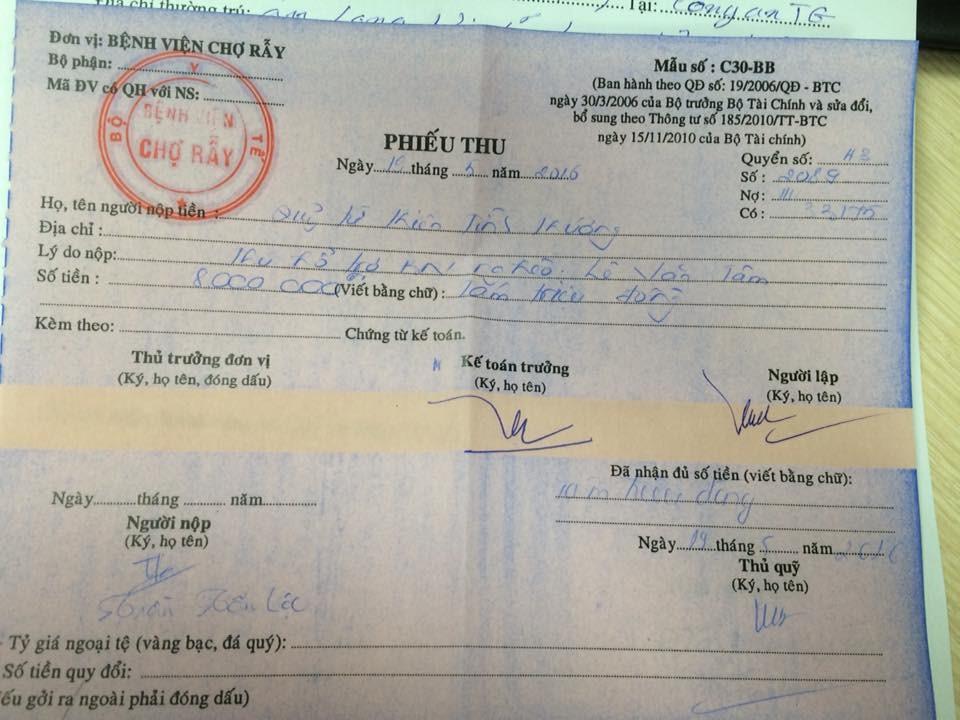 Địa chỉ thường trú: Tại: Công an TG
Đơn vị: BỆNH VIỆN CHỢ RẪY
Bộ phận:
Mã ĐV có QH với NS:
BỘ Y TẾ
BỆNH VIỆN
CHỢ RẪY
Mẫu số : C30-BB
(Ban hành theo QĐ số: 19/2006/QĐ - BTC
ngày 30/3/2006 của Bộ trưởng Bộ Tài Chính và sửa đổi,
bổ sung theo Thông tư số 185/2010/TT-BTC
ngày 15/11/2010 của Bộ Tài chính)
PHIẾU THU
Ngày 19 tháng 5 năm 2016
Quyển số: 43
Số : 2089
Nợ : 111
Có :
Họ, tên người nộp tiền :
Địa chỉ :
Lý do nộp: Lê Văn Tâm
Số tiền : 8000 000 (Viết bằng chữ) : Tám triệu đồng
Kèm theo: Chứng từ kế toán.
Thủ trưởng đơn vị
(Ký, họ tên, đóng dấu)
Kế toán trưởng
(Ký, họ tên)
Người lập
(Ký, họ tên)
Đã nhận đủ số tiền (viết bằng chữ):
Tám triệu đồng
Ngày 19 tháng 5 năm 2016
Thủ quỹ
(Ký, họ tên)
Ngày tháng năm
Người nộp
(Ký, họ tên)
- Tỷ giá ngoại tệ (vàng bạc, đá quý):
Số tiền quy đổi:
ếu gởi ra ngoài phải đóng dấu)